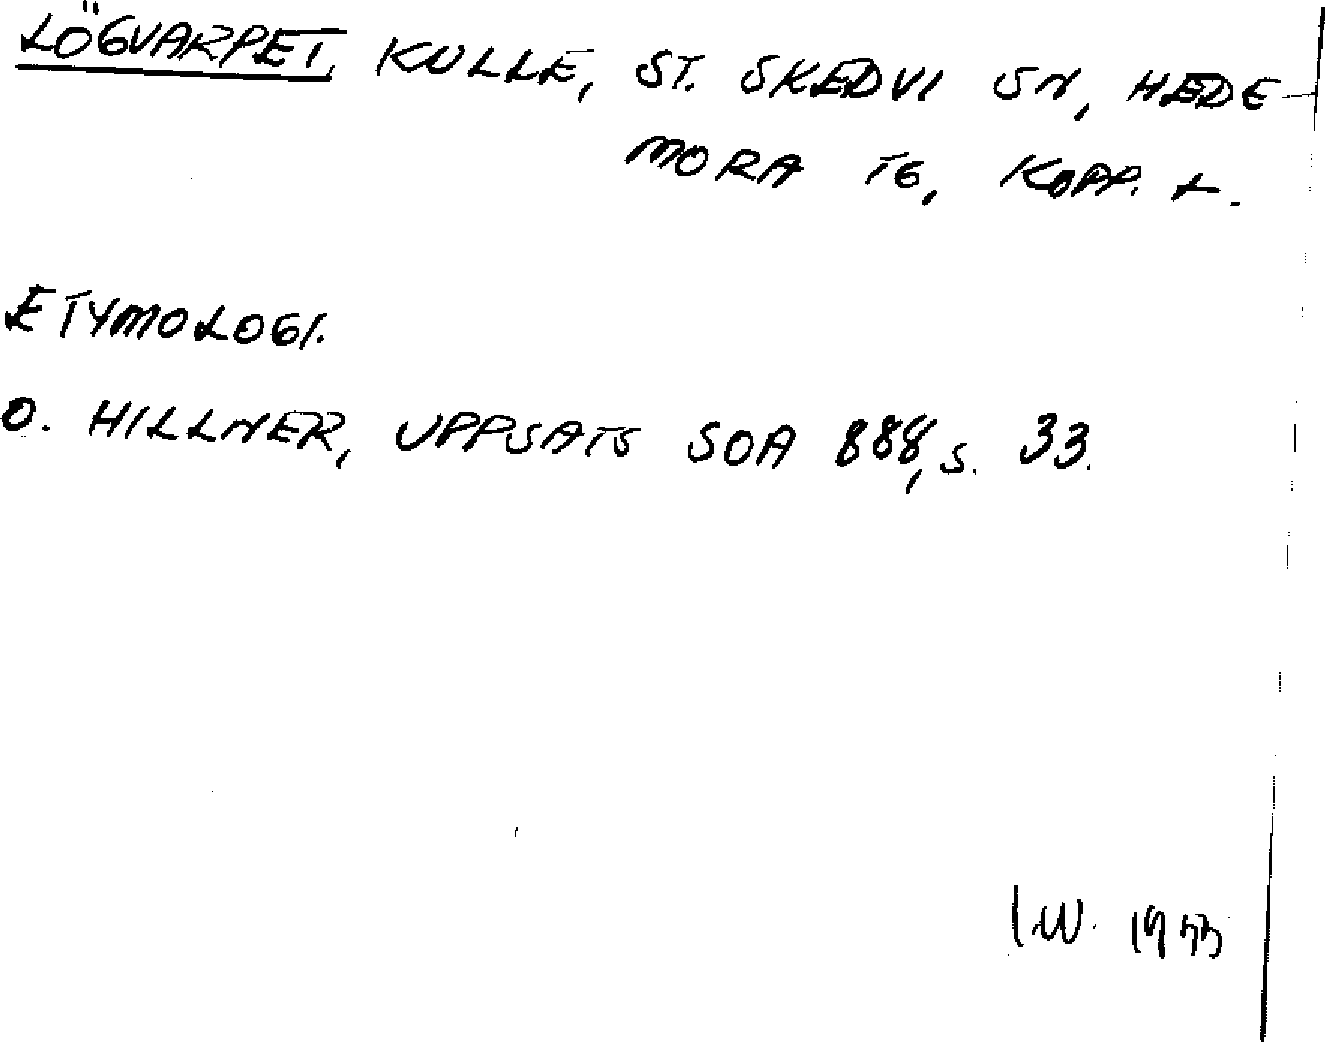 LÖGVARPET, KULLE, ST. SKEDVI SN, HEDE-
MORA TG, KOPP. L.
ETYMOLOGI.
O. HILLNER, UPPSATS SOA 888, S. 33.
I.W.